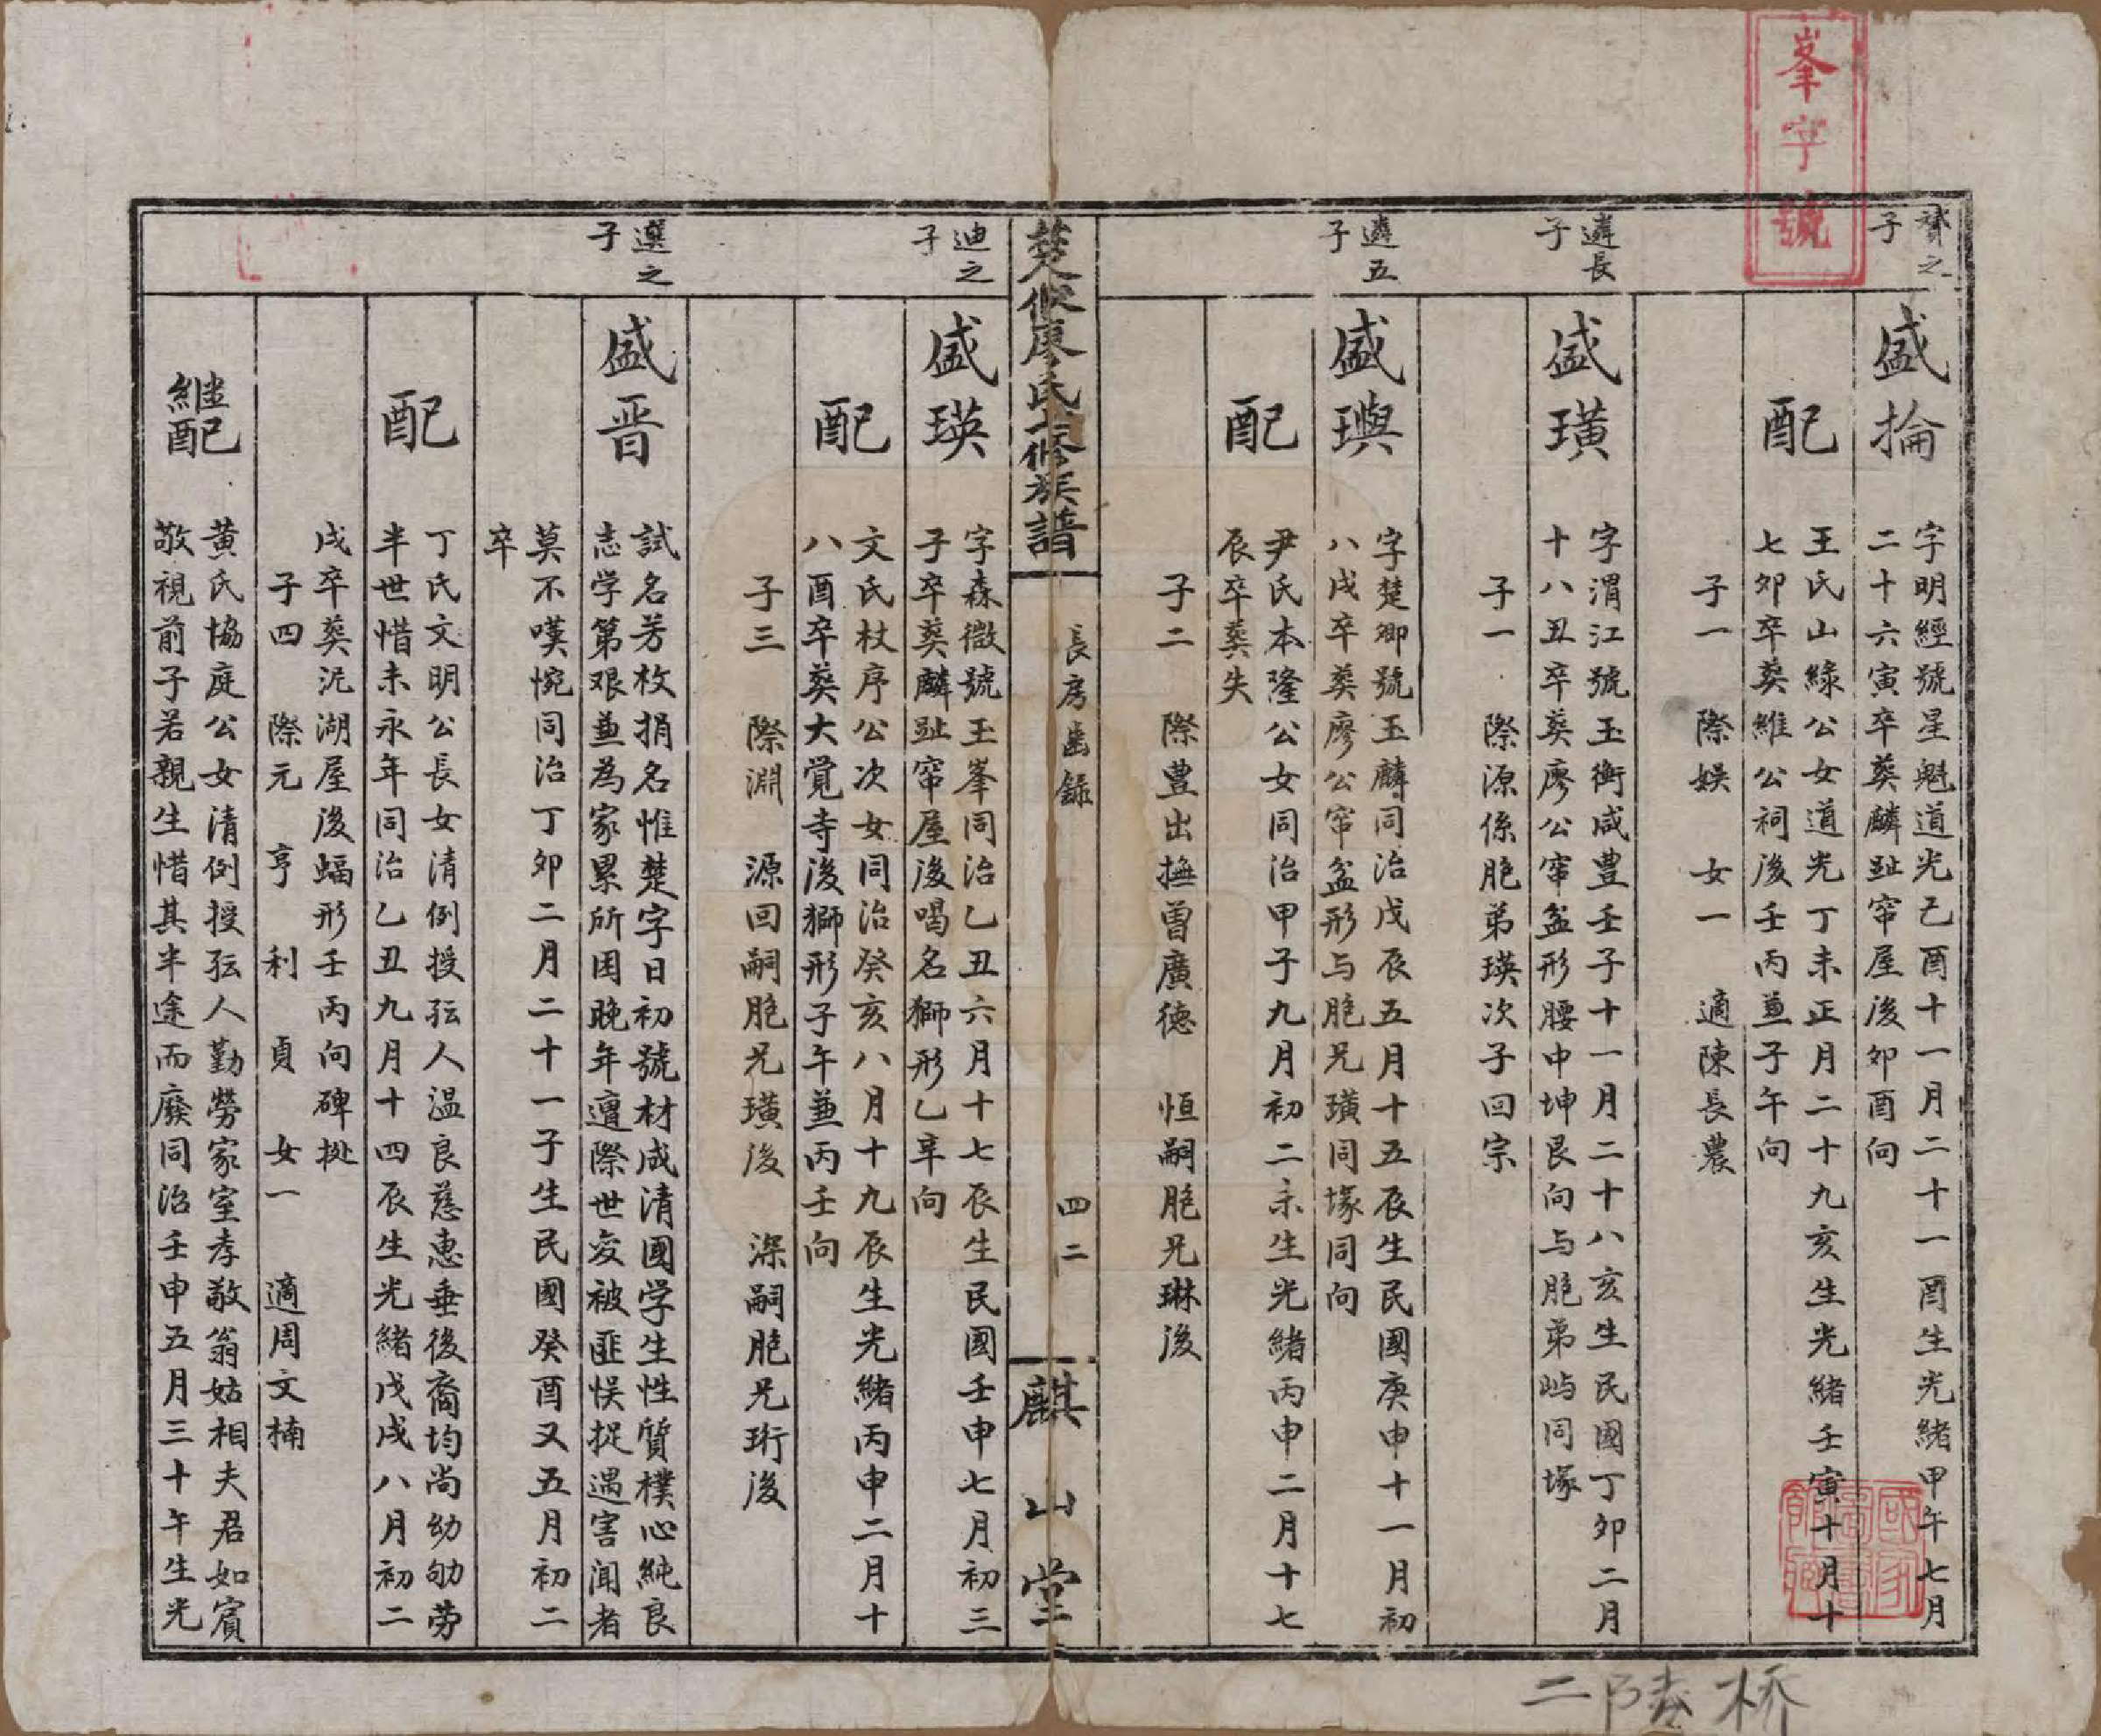 峯字號
賛之子
盛掄
字明經號星魁道光己酉十一月二十一酉生光緒甲午七月
二十六寅卒葬麟趾帘屋後卯酉向
配
王氏山綠公女道光丁未正月二十九亥生光緒壬寅十月十
七卯卒葬維公祠後壬丙兼子午向
子一 際娛 女一 適陳長農
遴長子
盛璜
字渭江號玉衡咸豊壬子十一月二十八亥生民國丁卯二月
十八丑卒葬廖公帘盆形腰申坤艮向与胞弟屿同塚
子一 際源係胞弟瑛次子回宗
遴五子
盛璵
字楚卿號玉麟同治戊辰五月十五辰生民國庚申十一月初
八戌卒葬廖公帘盆形与胞兄璜同塚同向
配
尹氏本隆公女同治甲子九月初二未生光緒丙申二月十七
辰卒葬失
子二 際豊出撫曽廣德 恒嗣胞兄琳後
楚攸廖氏七修族譜
長房齒錄
四二
麒山堂
迪之子
盛瑛
字森徵號玉峯同治乙丑六月十七辰生民國壬申七月初三
子卒葬麟趾帘屋後喝名獅形乙辛向
配
文氏杖序公次女同治癸亥八月十九辰生光緒丙申二月十
八酉卒葬大覚寺後獅形子午兼丙壬向
子三 際淵 源回嗣胞兄璜後 深嗣胞兄珩後
選之子
盛晋
試名芳枚捐名惟楚字日初號材成清國学生性質樸心純良
志学第艰兼為家累所困晚年遭際世变被匪悮捉遇害闻者
莫不嘆惋同治丁卯二月二十一子生民國癸酉又五月初二
卒
配
丁氏文明公長女清例授孺人温良慈惠垂後裔均尚幼劬劳
半世惜未永年同治乙丑九月十四辰生光緒戊戌八月初二
戌卒葬沅湖屋後蝠形壬丙向碑㧟
子四 際元 亨 利 貞 女一 適周文楠
継配
黄氏協庭公女清例授孺人勤勞家室孝敬翁姑相夫君如賓
敬視前子若親生惜其半途而廢同治壬申五月三十午生光
二陸桥